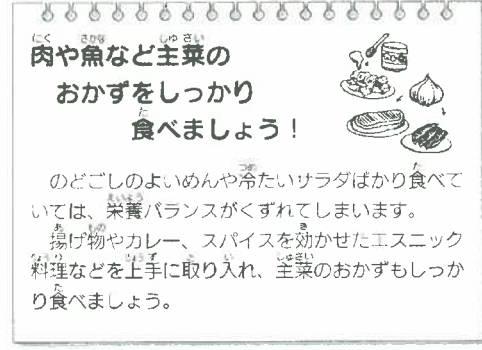 肉や魚など主菜の
おかずをしっかり
食べましょう！
のどごしのよいめんや冷たいサラダばかり食べて
いては、栄養バランスがくずれてしまいます。
揚げ物やカレー、スパイスを効かせたエスニック
料理などを上手に取り入れ、主菜のおかずもしっか
り食べましょう。